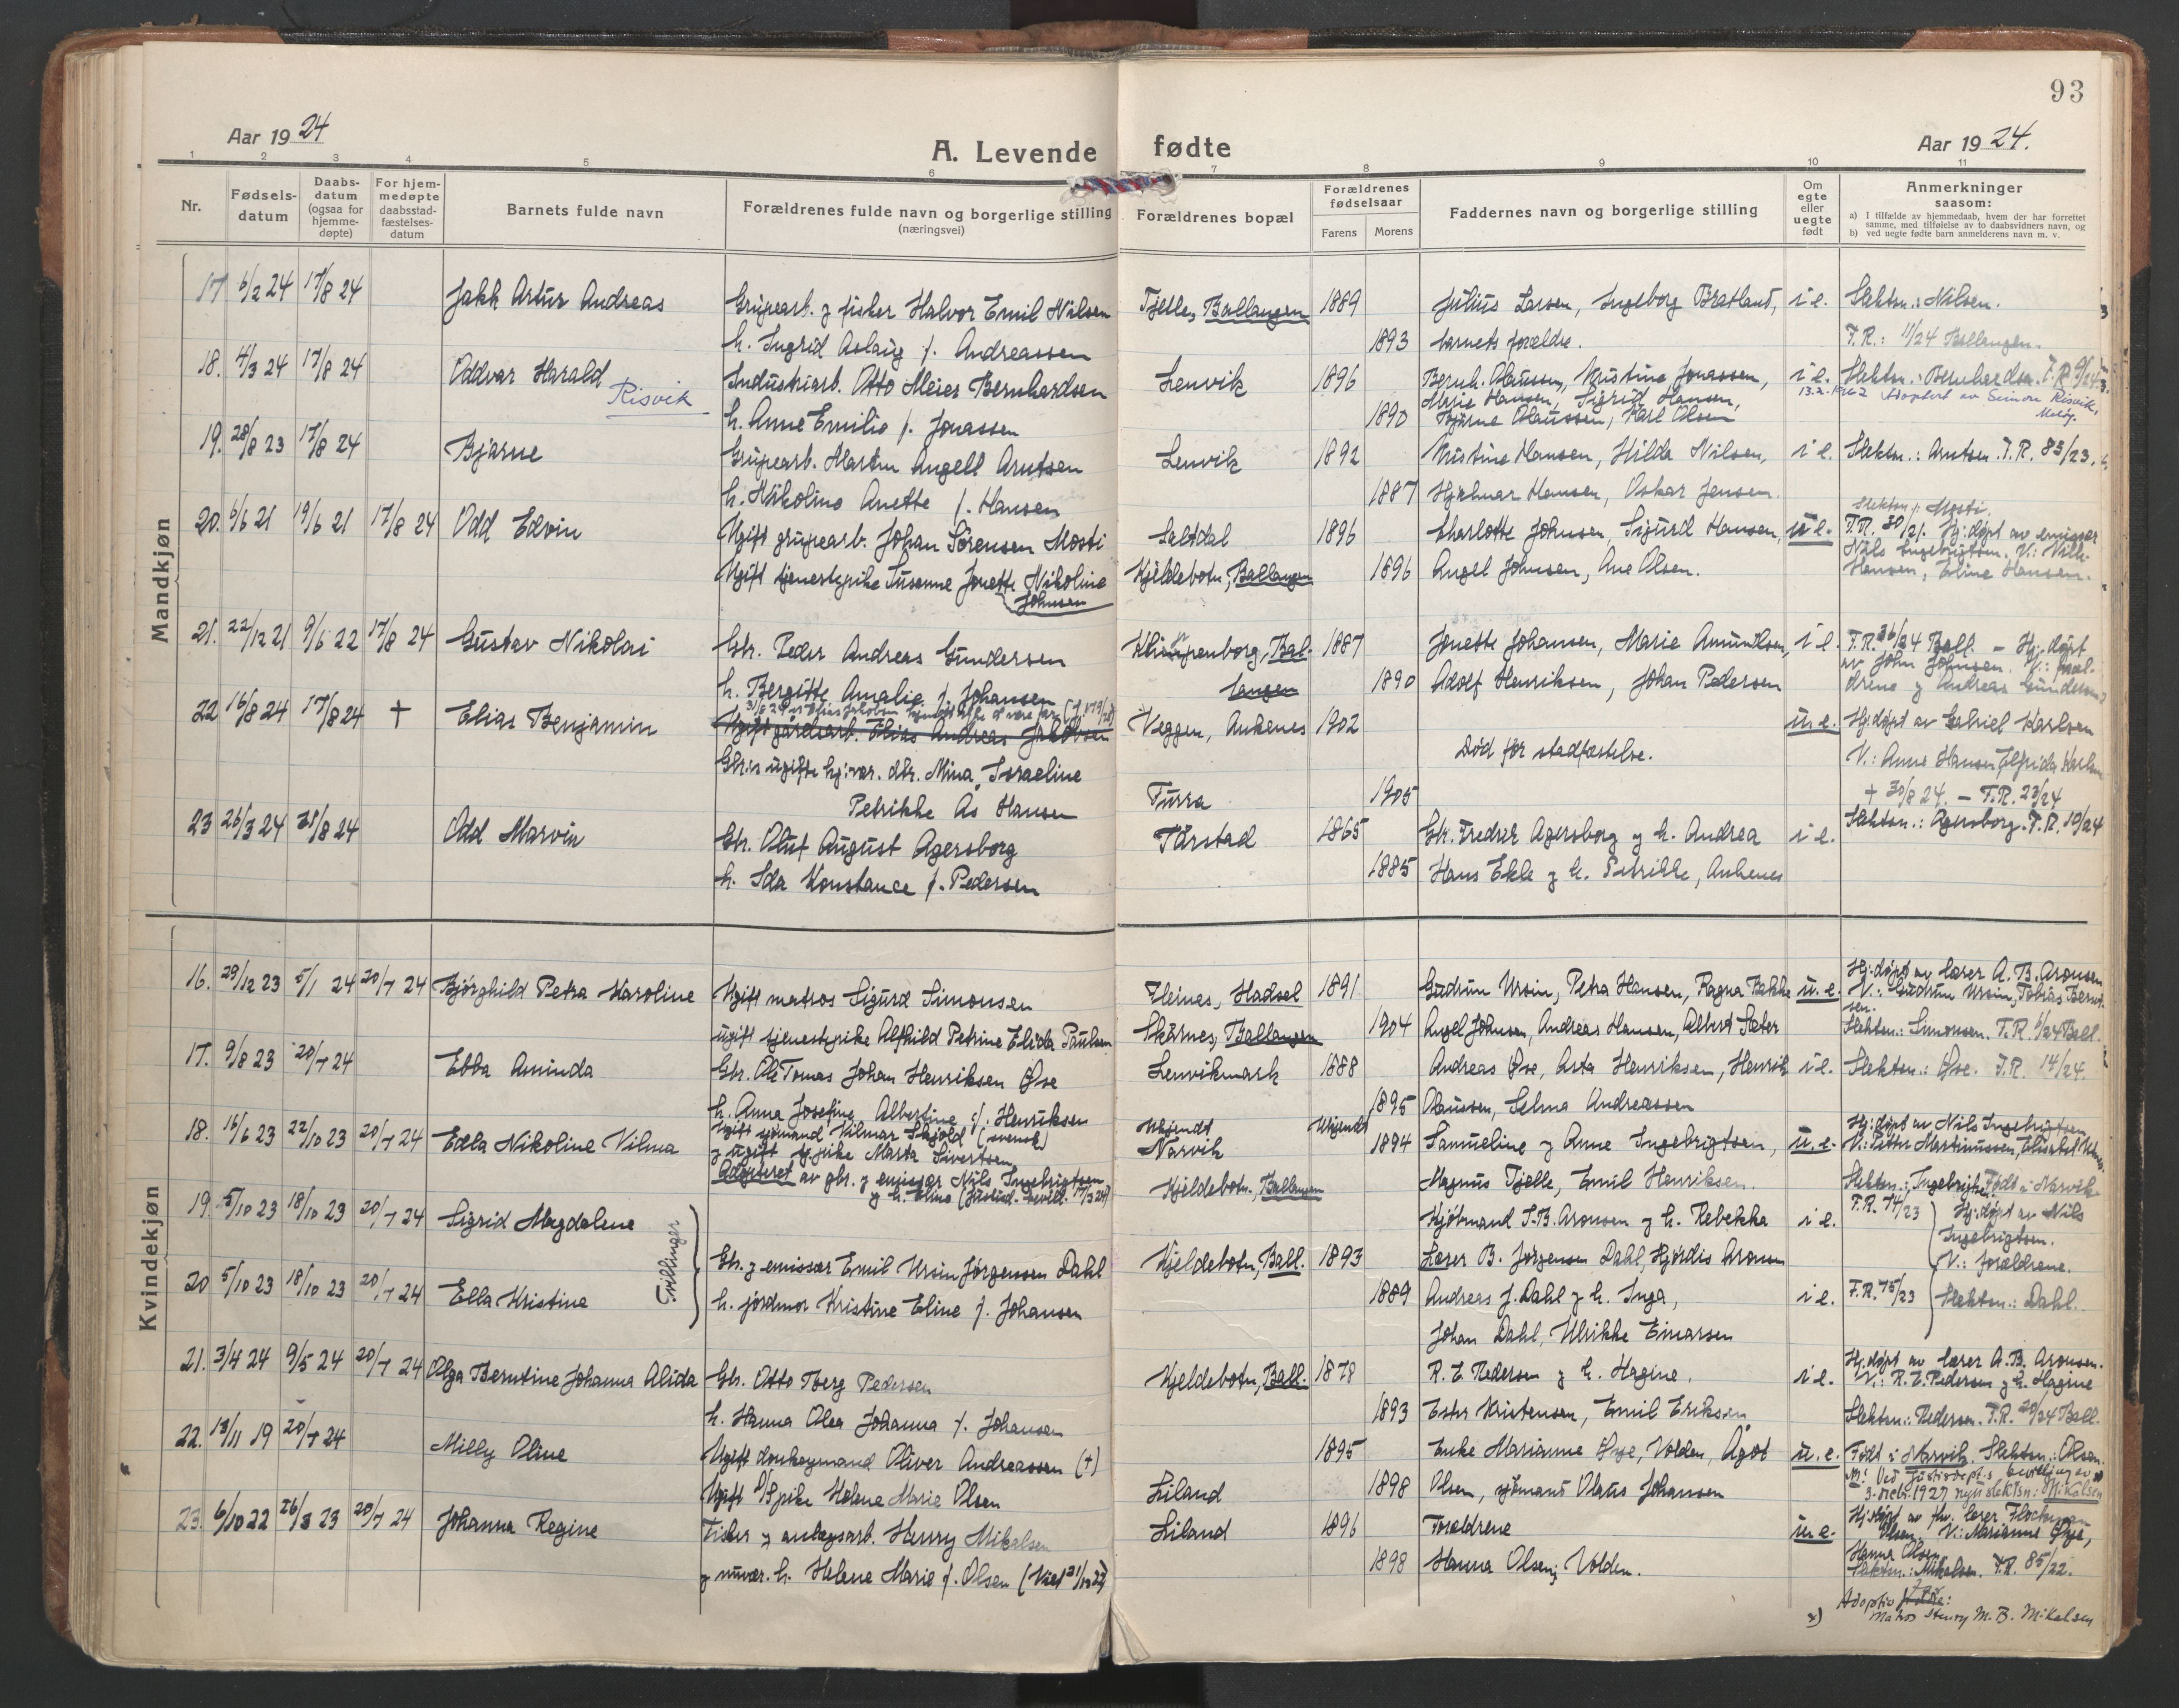 93
Aar 1924
A. Levende fødte
Aar 1924.
1 2 3 4 5 6 7 8 9 10 11
Nr.
Fødsels-
datum
Daabs-
datum
(ogsaa for
hjemme-
døpte)
For hjem-
medøpte
daabsstad-
fæstelses-
datum
Barnets fulde navn
Forældrenes fulde navn og borgerlige stilling
(næringsvei)
Forældrenes bopæl
Forældrenes
fødselsaar
Farens Morens
Faddernes navn og borgerlige stilling
Om
egte
eller
uegte
født
Anmerkninger
saasom:
a) I tilfælde av hjemmedaab, hvem der har forrettet
samme, med tilføielse av to daabsvidners navn, og
b) ved uegte fødte barn anmelderens navn m. v.
Mandkjøn
17 6/2 24 17/8 24 Jakk Artur Andreas Grupearb. g fisker Halvor Emil Nilsen Tjelle, Ballangen 1889 Julius Larsen, Ingeborg Bratland, i e. Slektsn.: Nilsen.
h. Ingrid Aslaug f. Andreassen 1893 barnets forældre. F.R.: 11/24 Ballangen.
18. 4/3 24 17/8 24 Oddvar Harald Industriarb. Otto Meier Bernhardsen Lenvik 1896 Bernh. Olaussen, Kristine Jonassen, i e. Slektsn.: Bernhardsen. F.R. 9/24
Risvik Marie Hansen, Sigrid Hansen, 13.2.1962 Adoptert av Simon Risvik,
h. Anne Emilie f. Jonassen 1890 Bjarne Olaussen, Karl Olsen
19. 28/8 23 17/8 24 Bjarne Grupearb. Martin Angell Arntsen Lenvik 1892 Kristine Hansen, Hilda Nilsen, i e. Slektsn.: Arntsen. F.R. 83/23.
h. Nikoline Anette f. Hansen 1887 Hjalmar Hansen, Oskar Jensen.
Slektsn.: Mosti.
20. 6/6 21 19/6 21 17/8 24 Odd Edvin Ugift grupearb. Johan Sørensen Mosti Saltdal 1896 Charlotte Johnsen, Sigurd Hansen, u e. F.R. 30/21. Hj:døpt av emissær
Nils Ingebrigtsen. V.: Vilh.
Ugift tjenestepike Susanne Jonette Nikoline Kjeldebotn, Ballangen 1896 Angel Johnsen, Ane Olsen. Hansen, Eline Hansen.
Johnsen
21. 22/12 21 9/6 22 17/8 24 Gustav Nikolai Gbr. Peder Andreas Gundersen Klimpenborg, Bal- 1887 Jonette Johansen, Marie Amundsen, i e. F.R. 36/24 Ball. – Hj:døpt
av John Johnsen. V.: foræl-
h. Bergitte Amalie f. Johansen langen 1890 Adolf Henriksen, Johan Pedersen drene g Andreas Gundersen
22 16/8 24 17/8 24 + Elias Benjamin Ugift gårdsarb. Elias Andreas Jakobsen Veggen, Ankenes 1902 u. e. Hj:døpt av Gabriel Karlsen
Død før stadfæstelse.
Gbr.s ugifte hj:vær. dtr. Mina Israeline V.: Anne Hansen, Elfrida Karlsen
Petrikke Ås Hansen Turra 1905 + 30/8 24. – F.R. 23/24
23 26/3 24 31/8 24 Odd Marvin Gbr. Oluf August Agersborg Tårstad 1865 Gbr. Fredrik Agersborg g h. Andrea i e. Slektsn.: Agersborg. F.R. 10/24
h. Ida Konstance f. Pedersen 1885 Hans Ekle g h. Petrikke, Ankenes
Kvindekjøn
16. 29/12 23 5/1 24 20/7 24 Bjørghild Petra Karoline Ugift matros Sigurd Simonsen Fleines, Hadsel 1891 Gudrun Ursin, Petra Hansen, Ragna Bakke u. e. Hj:døpt av lærer A. B. Aronsen
V.: Gudrun Ursin, Tobias Bernt-
sen.
ugift tjenestepike Alfhild Petrine Elida Paulsen Skarnes, Ballangen 1904 Angel Johnsen, Andreas Hansen, Albert Sæter Slektsn.: Simonsen. F.R. 1/24 Ball.
17. 9/8 23 20/7 24 Ebba Aminda Gbr. Ole Tomas Johan Henriksen Øse Lenvikmark 1888 Andreas Øse, Asta Henriksen, Henrik i e. Slektsn.: Øse. F.R. 14/24.
h. Anna Josefine Albertine f. Henriksen 1895 Olaussen, Selma Andreassen
18. 16/6 23 22/10 23 20/7 24 Edla Nikoline Vilma Ugift sjømand Vilmar Skjold (svensk) Ukjendt Ukjendt Hj:døpt av Nils Ingebrigtsen
g ugift pike Marta Sivertsen Narvik 1894 Samueline g Anne Ingebrigtsen, u. e. V.: Petter Martinussen,
Adopteret av gbr. g emissær Nils Ingebrigtsen Kjeldebotn, Ballangen Magnus Tjelle, Emil Henriksen. Slektsn.: Ingebrigtsen. Født i Narvik
g h. Eline (Justisd. bevill. 17/3 24)
19. 5/10 23 18/10 23 20/7 24 Sigrid Magdalene Kjøbmand S.B. Aronsen g h. Rebekka i e. F.R. 74/23 Hj:døpt av Nils
Ingebrigtsen.
Tvillinger Gbr. g emissær Emil Ursin Jørgensen Dahl Kjeldebotn, Ball. 1893 Lærer B. Jørgensen Dahl, Hjørdis Aronsen V.: Forældrene.
20 5/10 23 18/10 23 20/7 24 Ella Kristine h. jordmor Kristine Eline f. Johansen 1889 Andreas J. Dahl g h. Inga, i e. F.R. 75/23 Slektsn.: Dahl.
Johan Dahl, Ulrikke Einarsen
21. 3/4 24 9/5 24 20/7 24 Olga Berntine Johanna Alida Gbr. Otto Berg Pedersen Kjeldebotn, Ball. 1878 R. E. Pedersen g h. Hagine. i e. Hj:døpt av lærer A.B. Aronsen.
V.: R. E. Pedersen g h. Hagine
h. Hanna Olea Johanna f. Johansen 1893 Ester Kristensen, Emil Eriksen Slektsn.: Pedersen. F.R. 20/24 Ball.
22. 13/11 19 20/7 24 Milly Oline Ugift donkeymand Oliver Andreassen (+) 1895 Enke Marianne Øye, Volden, Ågot u. e. Født i Narvik. Slektsn.: Olsen.
Ugift pike Helene Marie Olsen Liland 1898 Olsen, sjømand Olaus Johansen Ved Justisdept.s bevilling av
3. 1927 nytt slektsn.: Mikalsen
23. 6/10 22 26/3 23 20/7 24 Johanna Regine Fisker g anlægsarb. Henry Mikalsen Liland 1896 Forældrene u. e. Hj:døpt av fhv. lærer
Olsen. V.: Marianne Øye,
Hanna Olsen.
g nuvær. h. Helene Marie f. Olsen 1898 Hanna Olsen, Volden. Slektsn.: Mikalsen. F.R. 85/22.
x) Adoptiv far:
Matros Henry M. B. Mikalsen